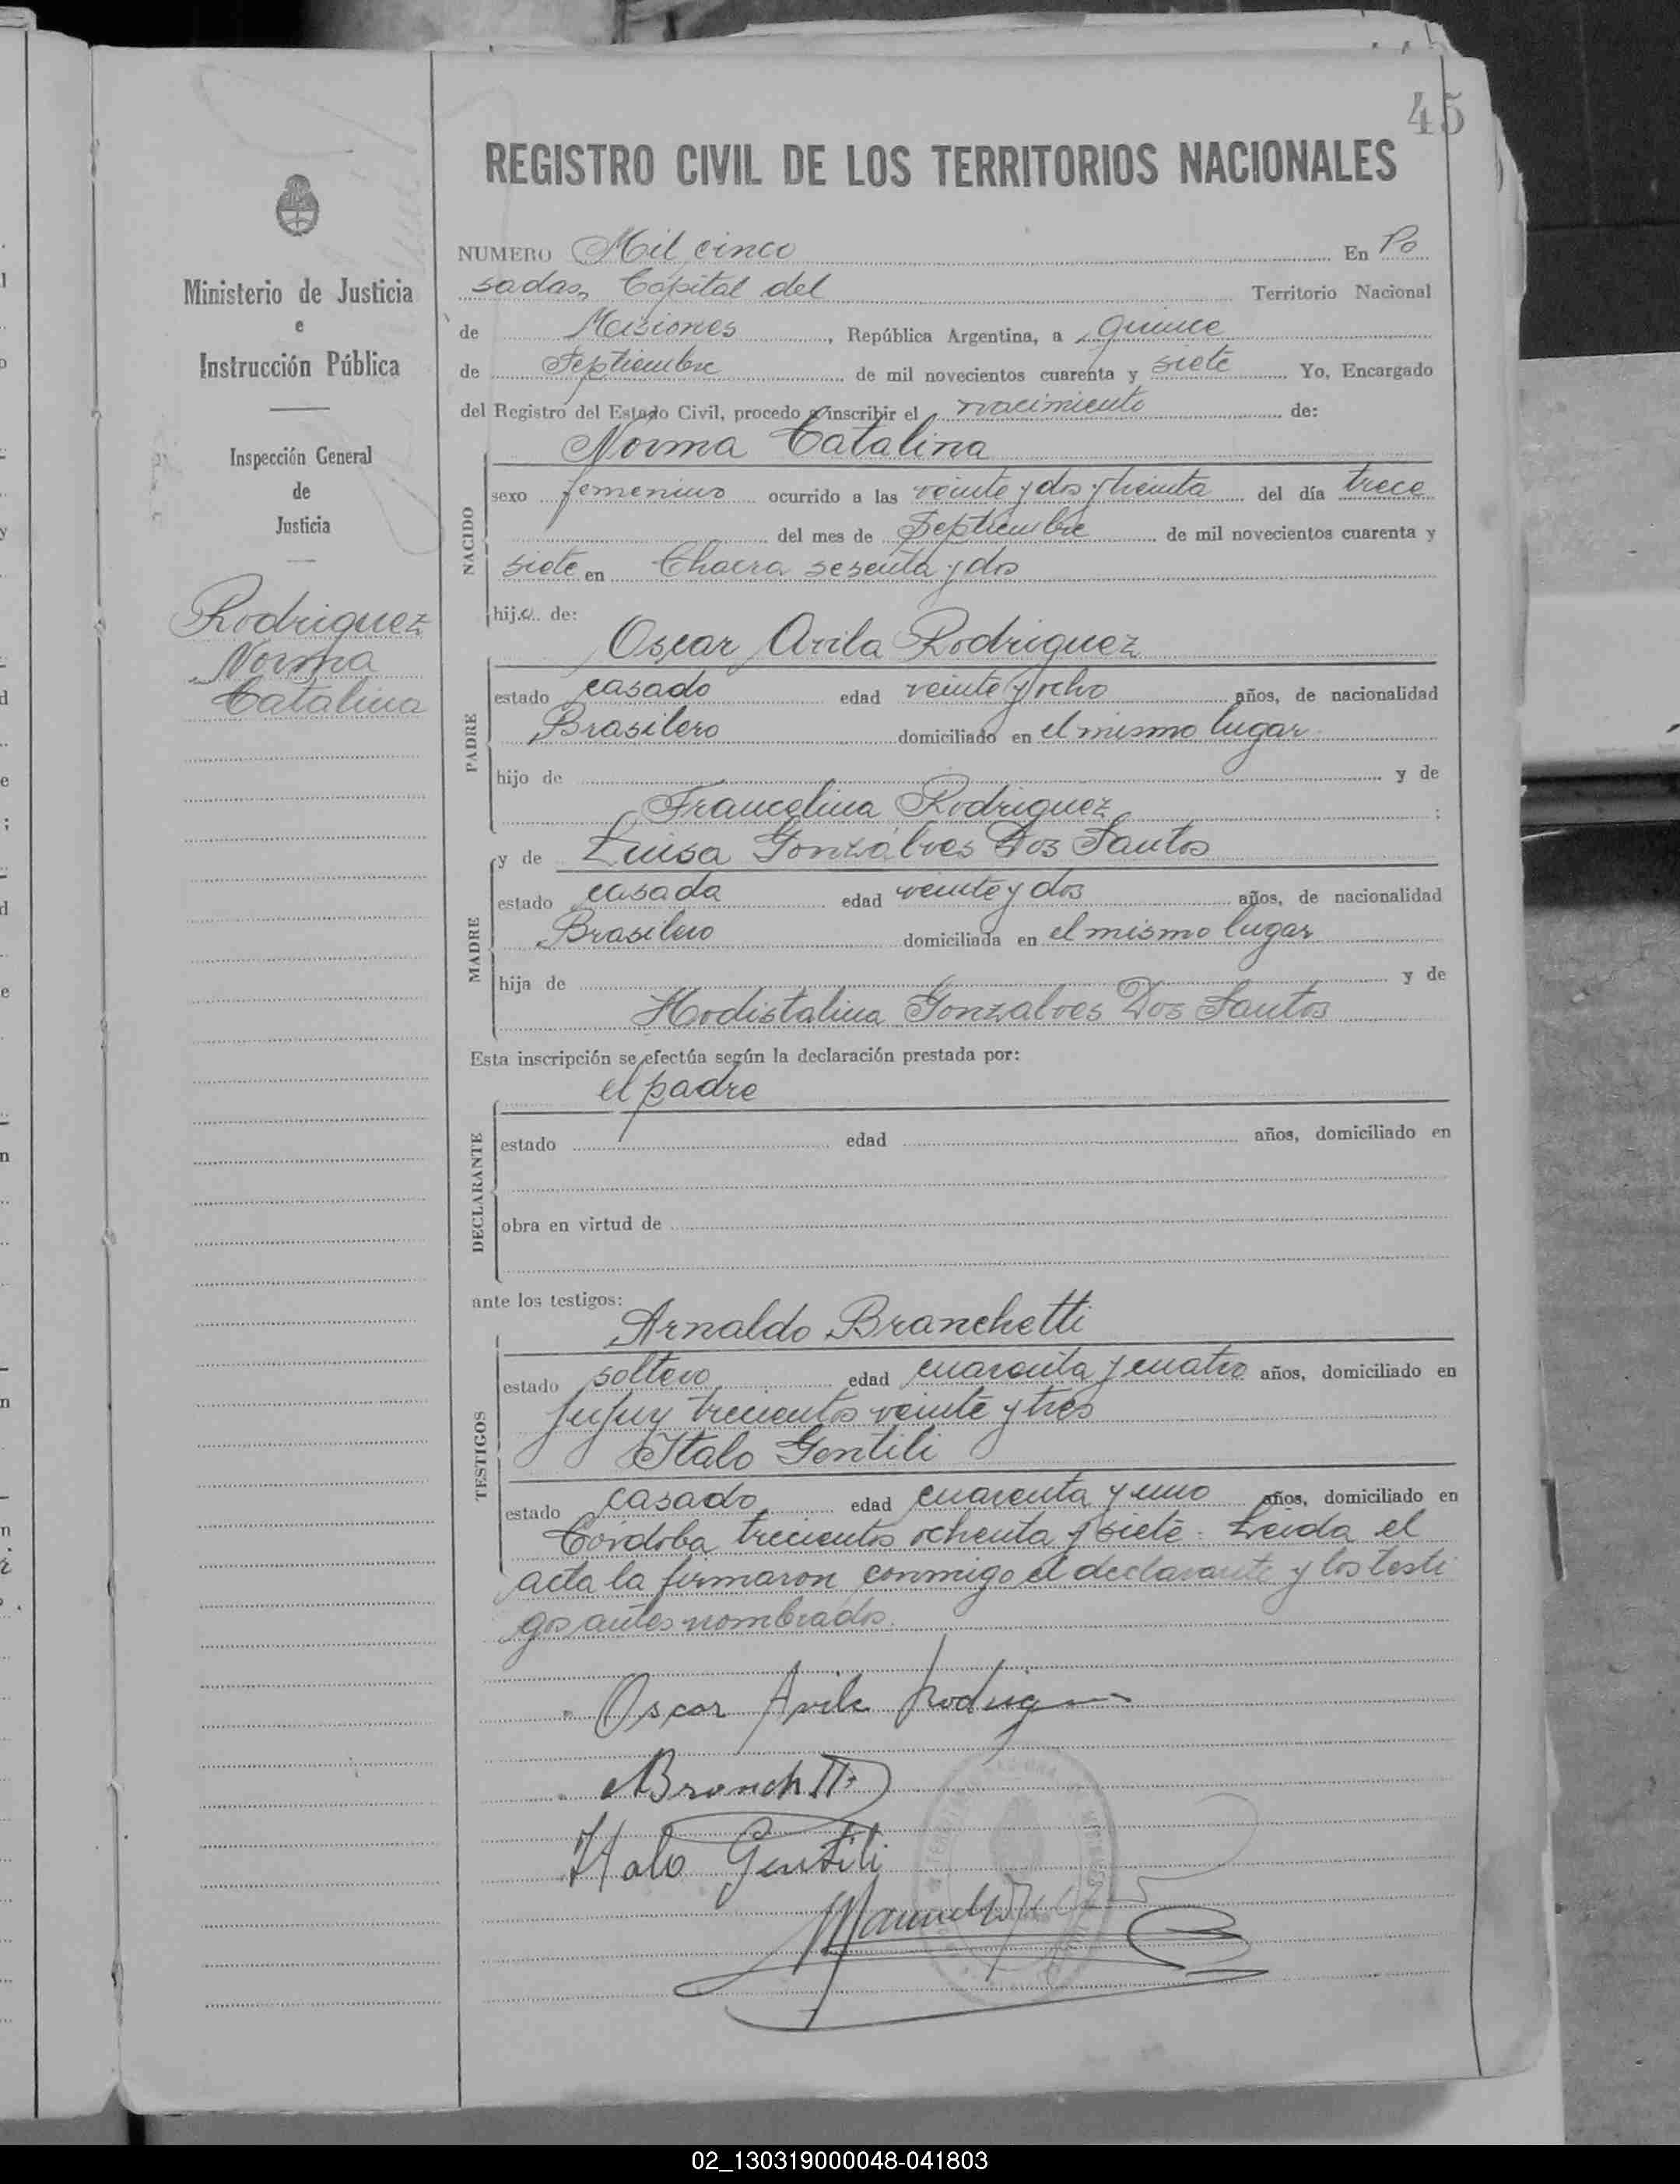 45
REGISTRO CIVIL DE LOS TERRITORIOS NACIONALES
Ministerio de Justicia
e
Instrucción Pública
Inspección General
de
Justicia
Rodriguez
Norma
Catalina
NUMERO Mil cinco En Po
sadas, Capital del Territorio Nacional
de Misiones, República Argentina, a quince
de Septiembre de mil novecientos cuarenta y siete Yo, Encargado
del Registro del Estado Civil, procedo a inscribir el nacimiento de:
Norma Catalina
NACIDO
sexo femenino ocurrido a las veinte y dos y treinta del día trece
del mes de Septiembre de mil novecientos cuarenta y
siete en Chacra sesenta y dos
hija de:
Oscar Avila Rodriguez
PADRE
estado casado edad veinte y ocho años, de nacionalidad
Brasilero domiciliado en el mismo lugar
hijo de y de
Francelina Rodriguez ;
y de Luisa Gonzálves Dos Santos
MADRE
estado casada edad veinte y dos años, de nacionalidad
Brasilero domiciliada en el mismo lugar
hija de y de
Hodistalina Gonzalves Dos Santos
Esta inscripción se efectúa según la declaración prestada por:
el padre
DECLARANTE
estado edad años, domiciliado en
obra en virtud de
ante los testigos:
Arnaldo Branchetti
TESTIGOS
estado soltero edad cuarenta y cuatro años, domiciliado en
Jujuy trecientos veinte y tres
Italo Gentili
estado casado edad cuarenta y uno años, domiciliado en
Córdoba trecientos ochenta y siete. Leida el
acta la firmaron conmigo el declarante y los testi
gos antes nombrados.
Oscar Avila Rodrig
ABranchtti
Italo Gentili
02_130319000048-041803